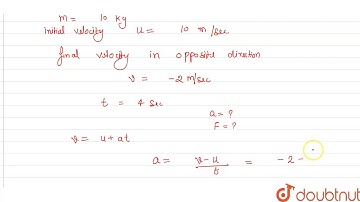 m = 10 kg
initial velocity u = 10 m/sec
final velocity in opposite direction
v = -2 m/sec
t = 4 sec
a = ?
F = ?
v = u + at
a = v-u/t = -2 -
doubtnut